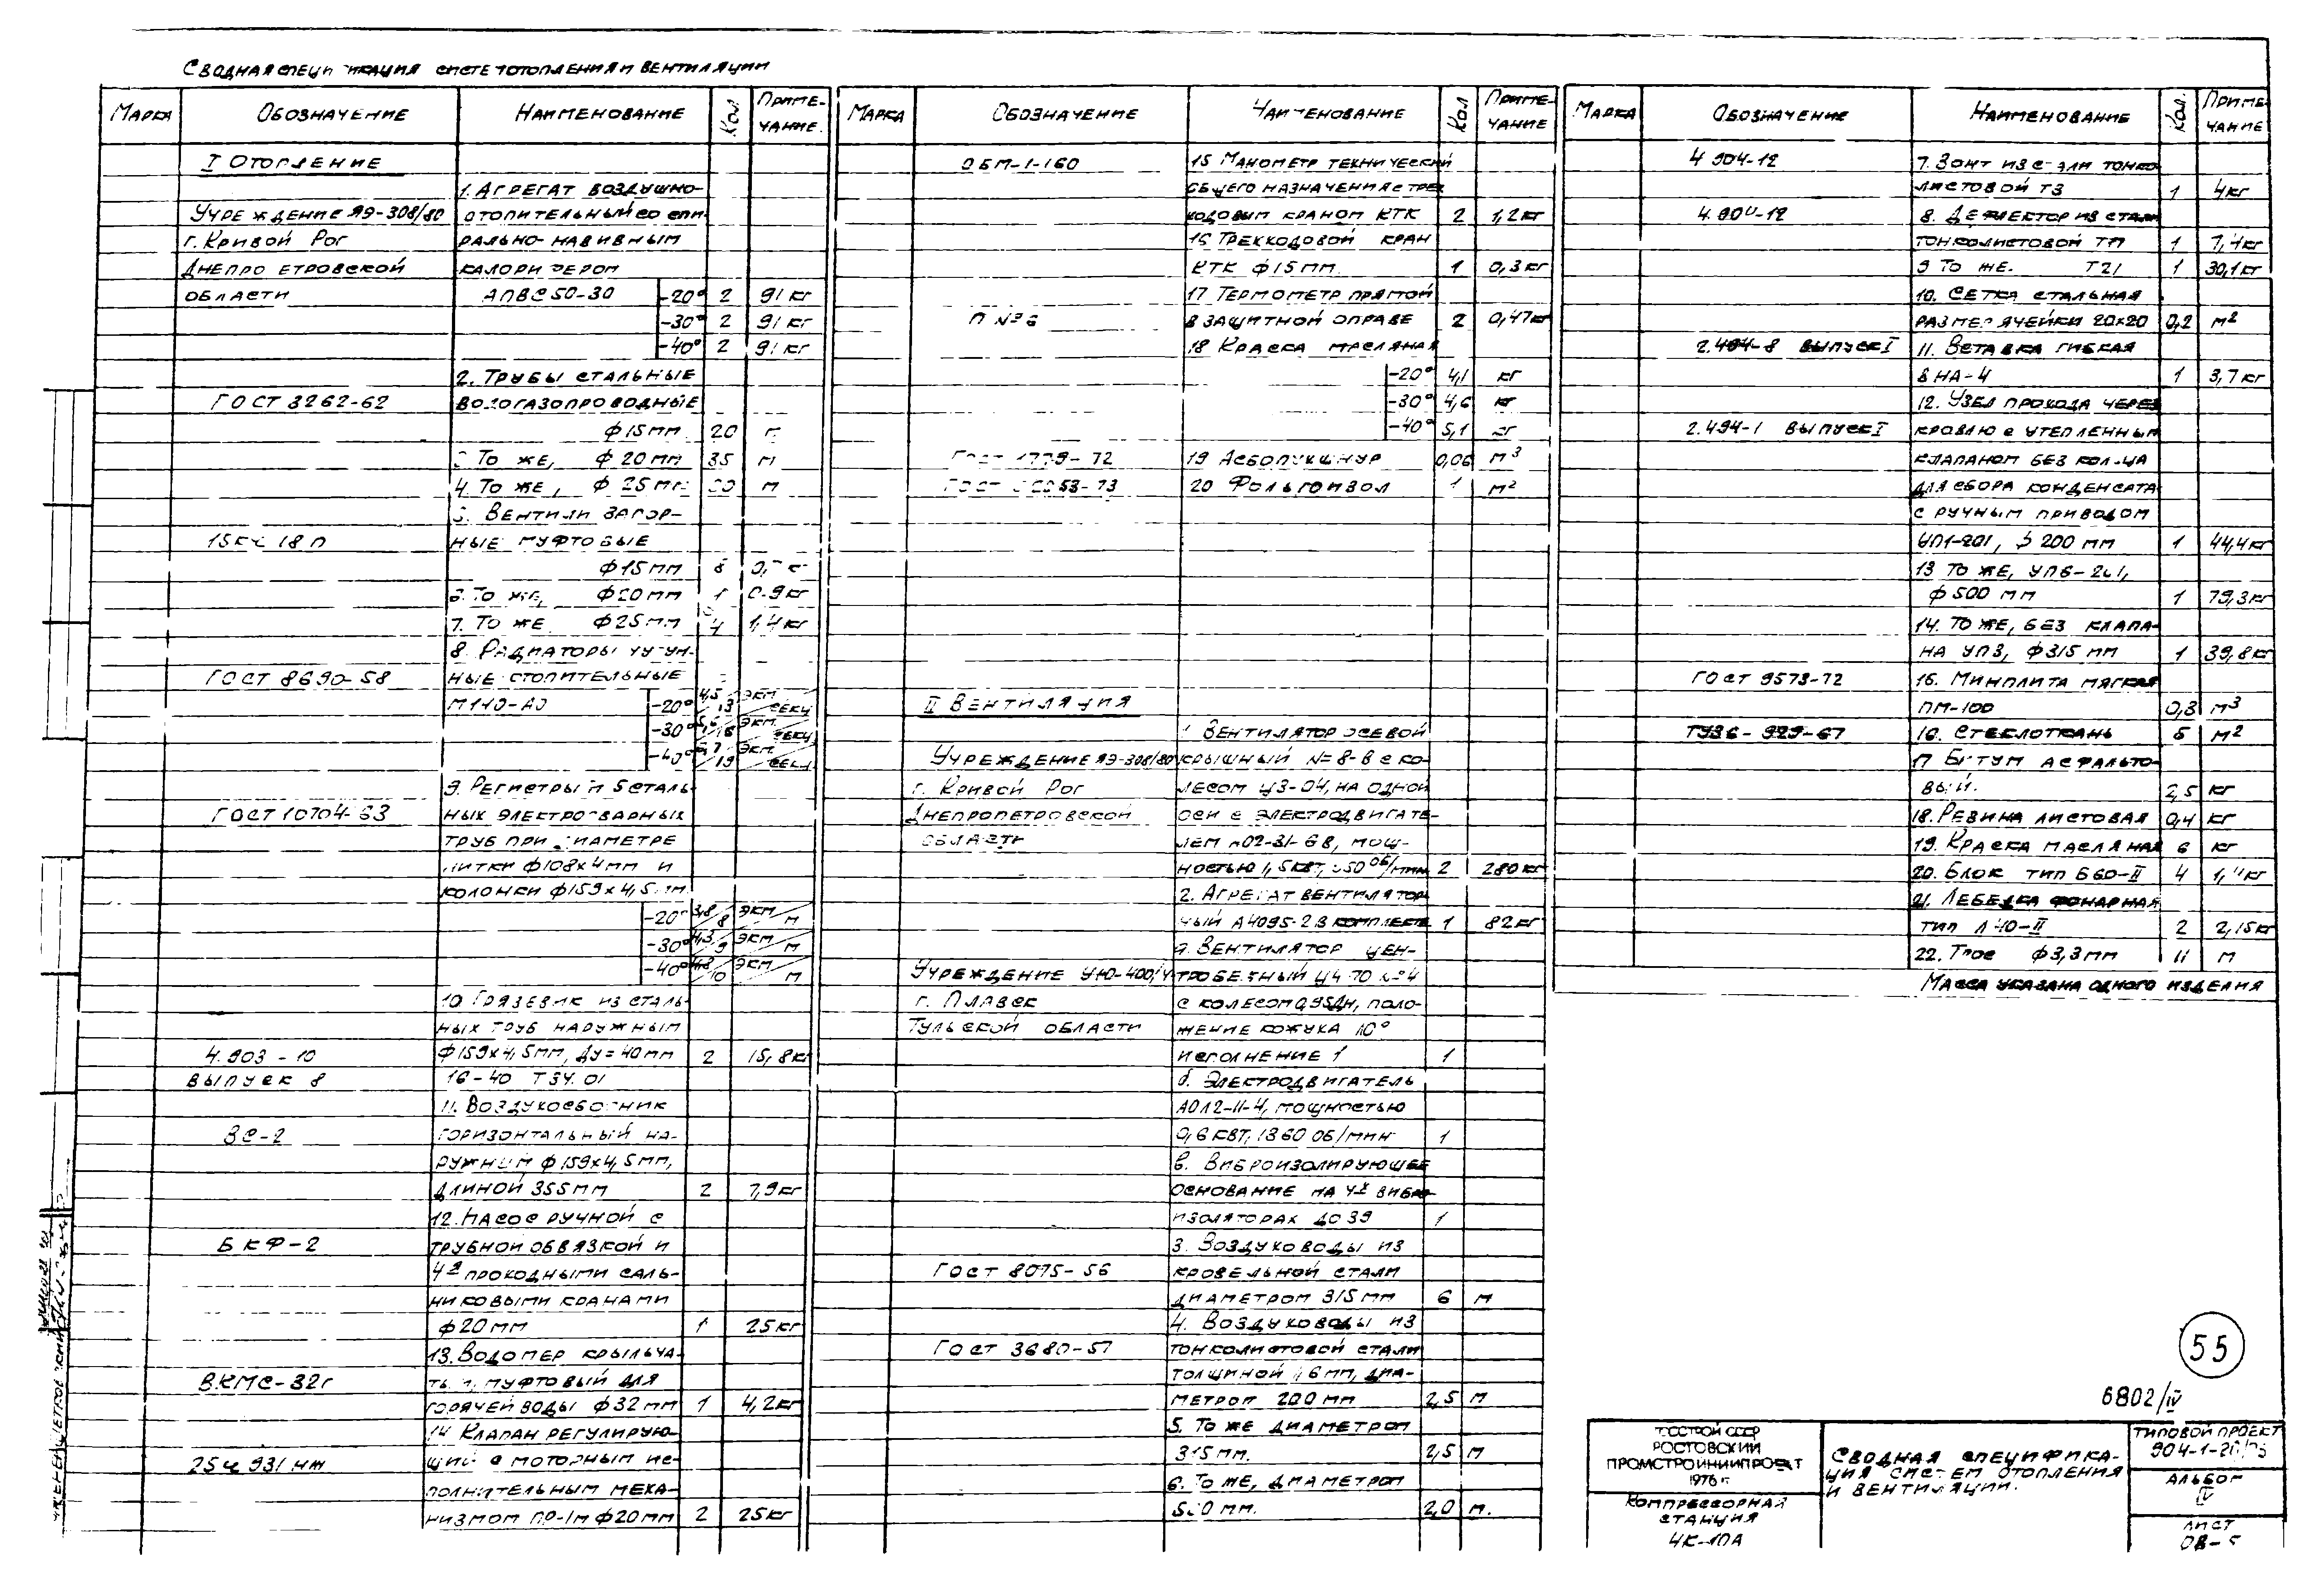 Сводная специ икация систе отопления и вентиляции
Марка Обозначение Наименование Кол Приме-чание.
I Отопление
1. Агрегат воздушно-
Учреждение ЯЭ-308/80 отопительный со спи-
г. Кривой Рог рально-навивным
Днепро етровской калори фером
области АПВС50-30 -20° 2 91 кг
-30° 2 91 кг
-40° 2 91 кг
2. Трубы стальные
ГОСТ 3262-62 водогазопроводные
ф15мм 20 м
То же, ф 20мм 35 м
4. То же, ф 25мм м
Вентили запор-
15кч 18п ные муфтовые
ф15мм
То же, ф20мм 1 0.9кг
7. То же ф25мм 4 1,4кг
8. Радиаторы чугун-
ГОСТ 8690-58 ные отопительные
М140-АО -20° 4,5/13 экм/секц
-30° /16 экм/секц
-40° /19 экм/секц
9. Регистры из сталь-
ГОСТ 10704-63 ных электросварных
труб при диаметре
нитки ф108х4мм и
колонки ф159х4,5мм
-20° 3,8/8 экм/м
-30° 4,3/9 экм/м
-40° 4,8/10 экм/м
10 Грязевик из сталь-
ных труб наружным
4.903-10 ф159х4,5мм, Ду=40мм 2 15,8кг
выпуск 8 16-40 ТЗ4.01
11. Воздухосборник
ВС-2 горизонтальный на-
ружным ф159х4,5мм,
длиной 355мм 2 7,9кг
12. Насос ручной с
БКФ-2 трубной обвязкой и
4я проходными саль-
никовыми кранами
ф20мм 1 25кг
13. Водомер крыльча-
ВКМС-32г тый муфтовый для
горячей воды ф32мм 1 4,2кг
14 Клапан регулирую-
25ч 931нж щий с моторным ис-
полнительным меха-
низмом ПР-1м ф20мм 2 25кг
Марка Обозначение Наименование Кол Приме-чание
ОБМ-1-160 15 Манометр технический
общего назначения с трех
ходовым краном КТК 2 1,2кг
16 Трехходовой кран
КТК ф15мм 1 0,3кг
17 Термометр прямой
П №6 в защитной оправе 2 0,47кг
18 Краска масляная
-20° 4,1 кг
-30° 4,6 кг
-40° 5,1 кг
ГОСТ 1779-72 19 Асбопухшнур 0,06 м3
ГОСТ 53-73 20 Фольгоизол 1 м2
II Вентиляция
1 Вентилятор осевой
Учреждение ЯЭ-308/80 крышный №8-В с ко-
г. Кривой Рог лесом ЦЗ-04, на одной
Днепропетровской оси с электродвигате-
области лем 02-31-6В, мощ-
ностью 1,5квт, 50 об/мин 2 280кг
2. Агрегат вентилятор
ный А4095-2 в комплекте 1 82кг
а. Вентилятор цен-
Учреждение УЮ-400/4 тробежный Ц4 70 №4
г. Плавск с колесом 0,95Дн, поло-
Тульской области жение кожуха Л0°
исполнение 1 1
б. Электродвигатель
АОЛ2-11-4, мощностью
0,6 квт, 1360 об/мин 1
в. Виброизолирующее
основание на 4х вибро-
изоляторах ДО39 1
3. Воздуховоды из
ГОСТ 8075-56 кровельной стали
диаметром 315мм 6 м
4. Воздуховоды из
ГОСТ 3680-57 тонколистовой стали
толщиной 1,6мм, диа-
метром 200мм 2,5 м
5. То же диаметром
315мм. 2,5 м
6. То же, диаметром
мм. 2,0 м.
Марка Обозначение Наименование Кол. Приме-чание
4 904-12 7. Зонт из стали тонко
листовой ТЗ 1 4кг
4.904-12 8. Дефлектор из стали
тонколистовой ТП 1 7,4кг
9 То же. Т21 1 30,1кг
10. Сетка стальная
размер ячейки 20х20 0,2 м2
2.494-8 выпуск I 11. Вставка гибкая
ВНА-4 1 3,7кг
12. Узел прохода через
2.494-1 выпуск I кровлю с утепленным
клапаном без кольца
для сбора конденсата
с ручным приводом
УП1-201, ф 200мм 1 44,4кг
13 То же, УП6-201,
ф500мм 1 79,3кг
14. То же, без клапа-
на УПЗ, ф315мм 1 39,8кг
ГОСТ 9573-72 15. Минплита мягкая
ПМ-100 0,3 м3
ТУ36-929-67 16. Стеклоткань 5 м2
17 Битум асфальто-
вый. 2,5 кг
18. Резина листовая 0,4 кг
19. Краска масляная 6 кг
20. Блок тип Б60-II 4 кг
21. Лебедка фонарная
тип Л40-II 2 2,15кг
22. Трос ф3,3мм 11 м
Масса указана одного изделия
55
6802/IV
Госстрой СССР
Ростовский
Промстройниипроект
1976г.
Компрессорная
станция
4К-10А
Сводная специфика-
ция систем отопления
и вентиляции.
Типовой проект
904-1-2
Альбом
IV
лист
ОВ-5